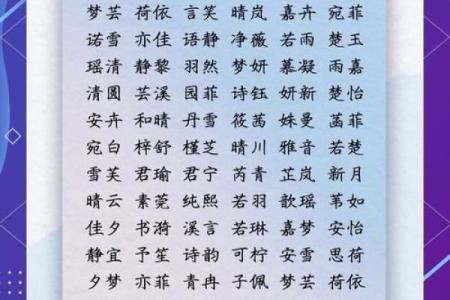 梦芸 荷依 言笑 晴岚 嘉卉 宛菲
诺雪 亦佳 语静 净薇 若雨 楚玉
瑶清 静黎 羽然 梦妍 慕凝 雨嘉
清圆 芸溪 园菲 诗钰 妍新 楚怡
安卉 和晴 丹雪 筱茜 姝曼 菡菲
宛白 梓舒 槿芝 晴川 雅音 若楚
雪芙 君瑜 君宁 芮青 芷岚 新月
晴云 素莞 纯熙 若羽 歌瑶 苇如
佳夕 书漪 溪言 若琳 嘉梦 安怡
静宜 予笙 诗韵 可柠 安雪 思荷
夕梦 亦菲 青冉 子佩 梦芸 荷依